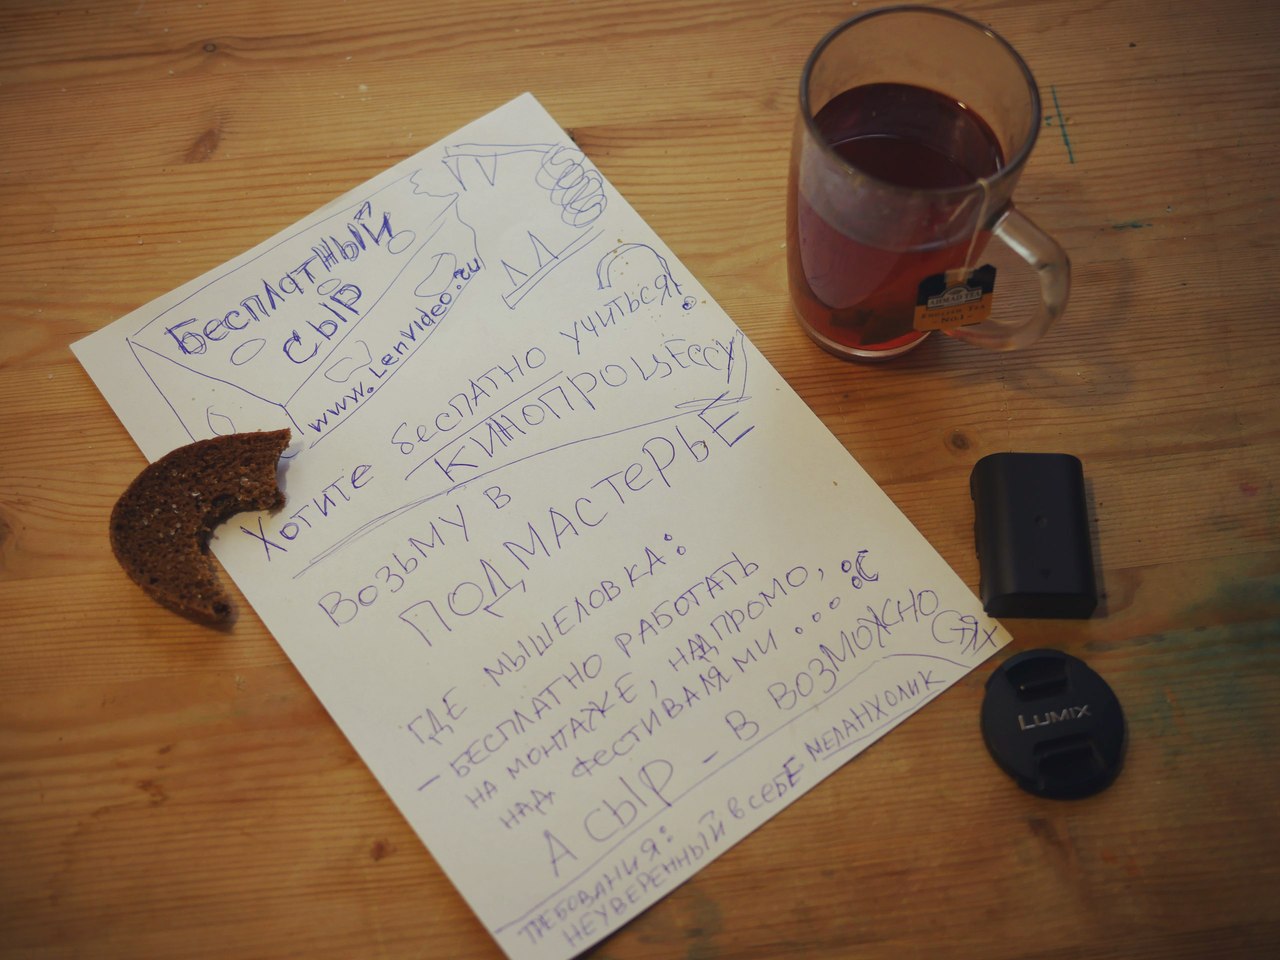 Бесплатный
сыр
www.LenVideo.ru
Хотите беспатно учиться!
кинопроцессу
Возьму в
подмастерье
где мышеловка:
- бесплатно работать
на монтаже, над промо,
над фестивалями...:С
А сыр - в возможностях
Требования:
неуверенный в себе меланхолик
AHMAD TEA
English Tea
No.1
LUMIX